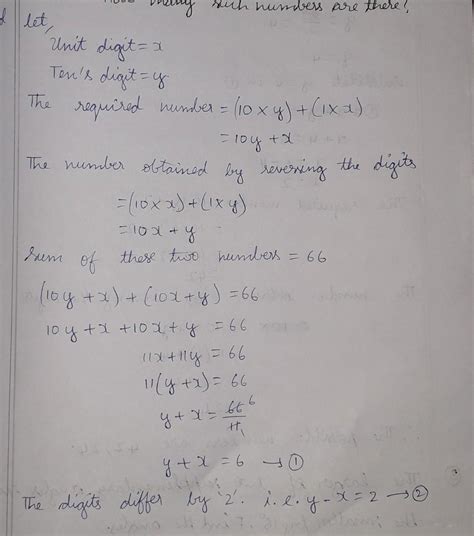 many such numbers are there?
let,
Unit digit = x
Ten's digit = y
The required number = (10 × y) + (1 × x)
= 10y + x
The number obtained by reversing the digits
= (10 × x) + (1 × y)
= 10x + y
Sum of these two numbers = 66
(10y + x) + (10x + y) = 66
10y + x + 10x + y = 66
11x + 11y = 66
11(y + x) = 66
y + x = 66/11 6
y + x = 6 → ①
The digits differ by '2'. i.e. y - x = 2 → ②